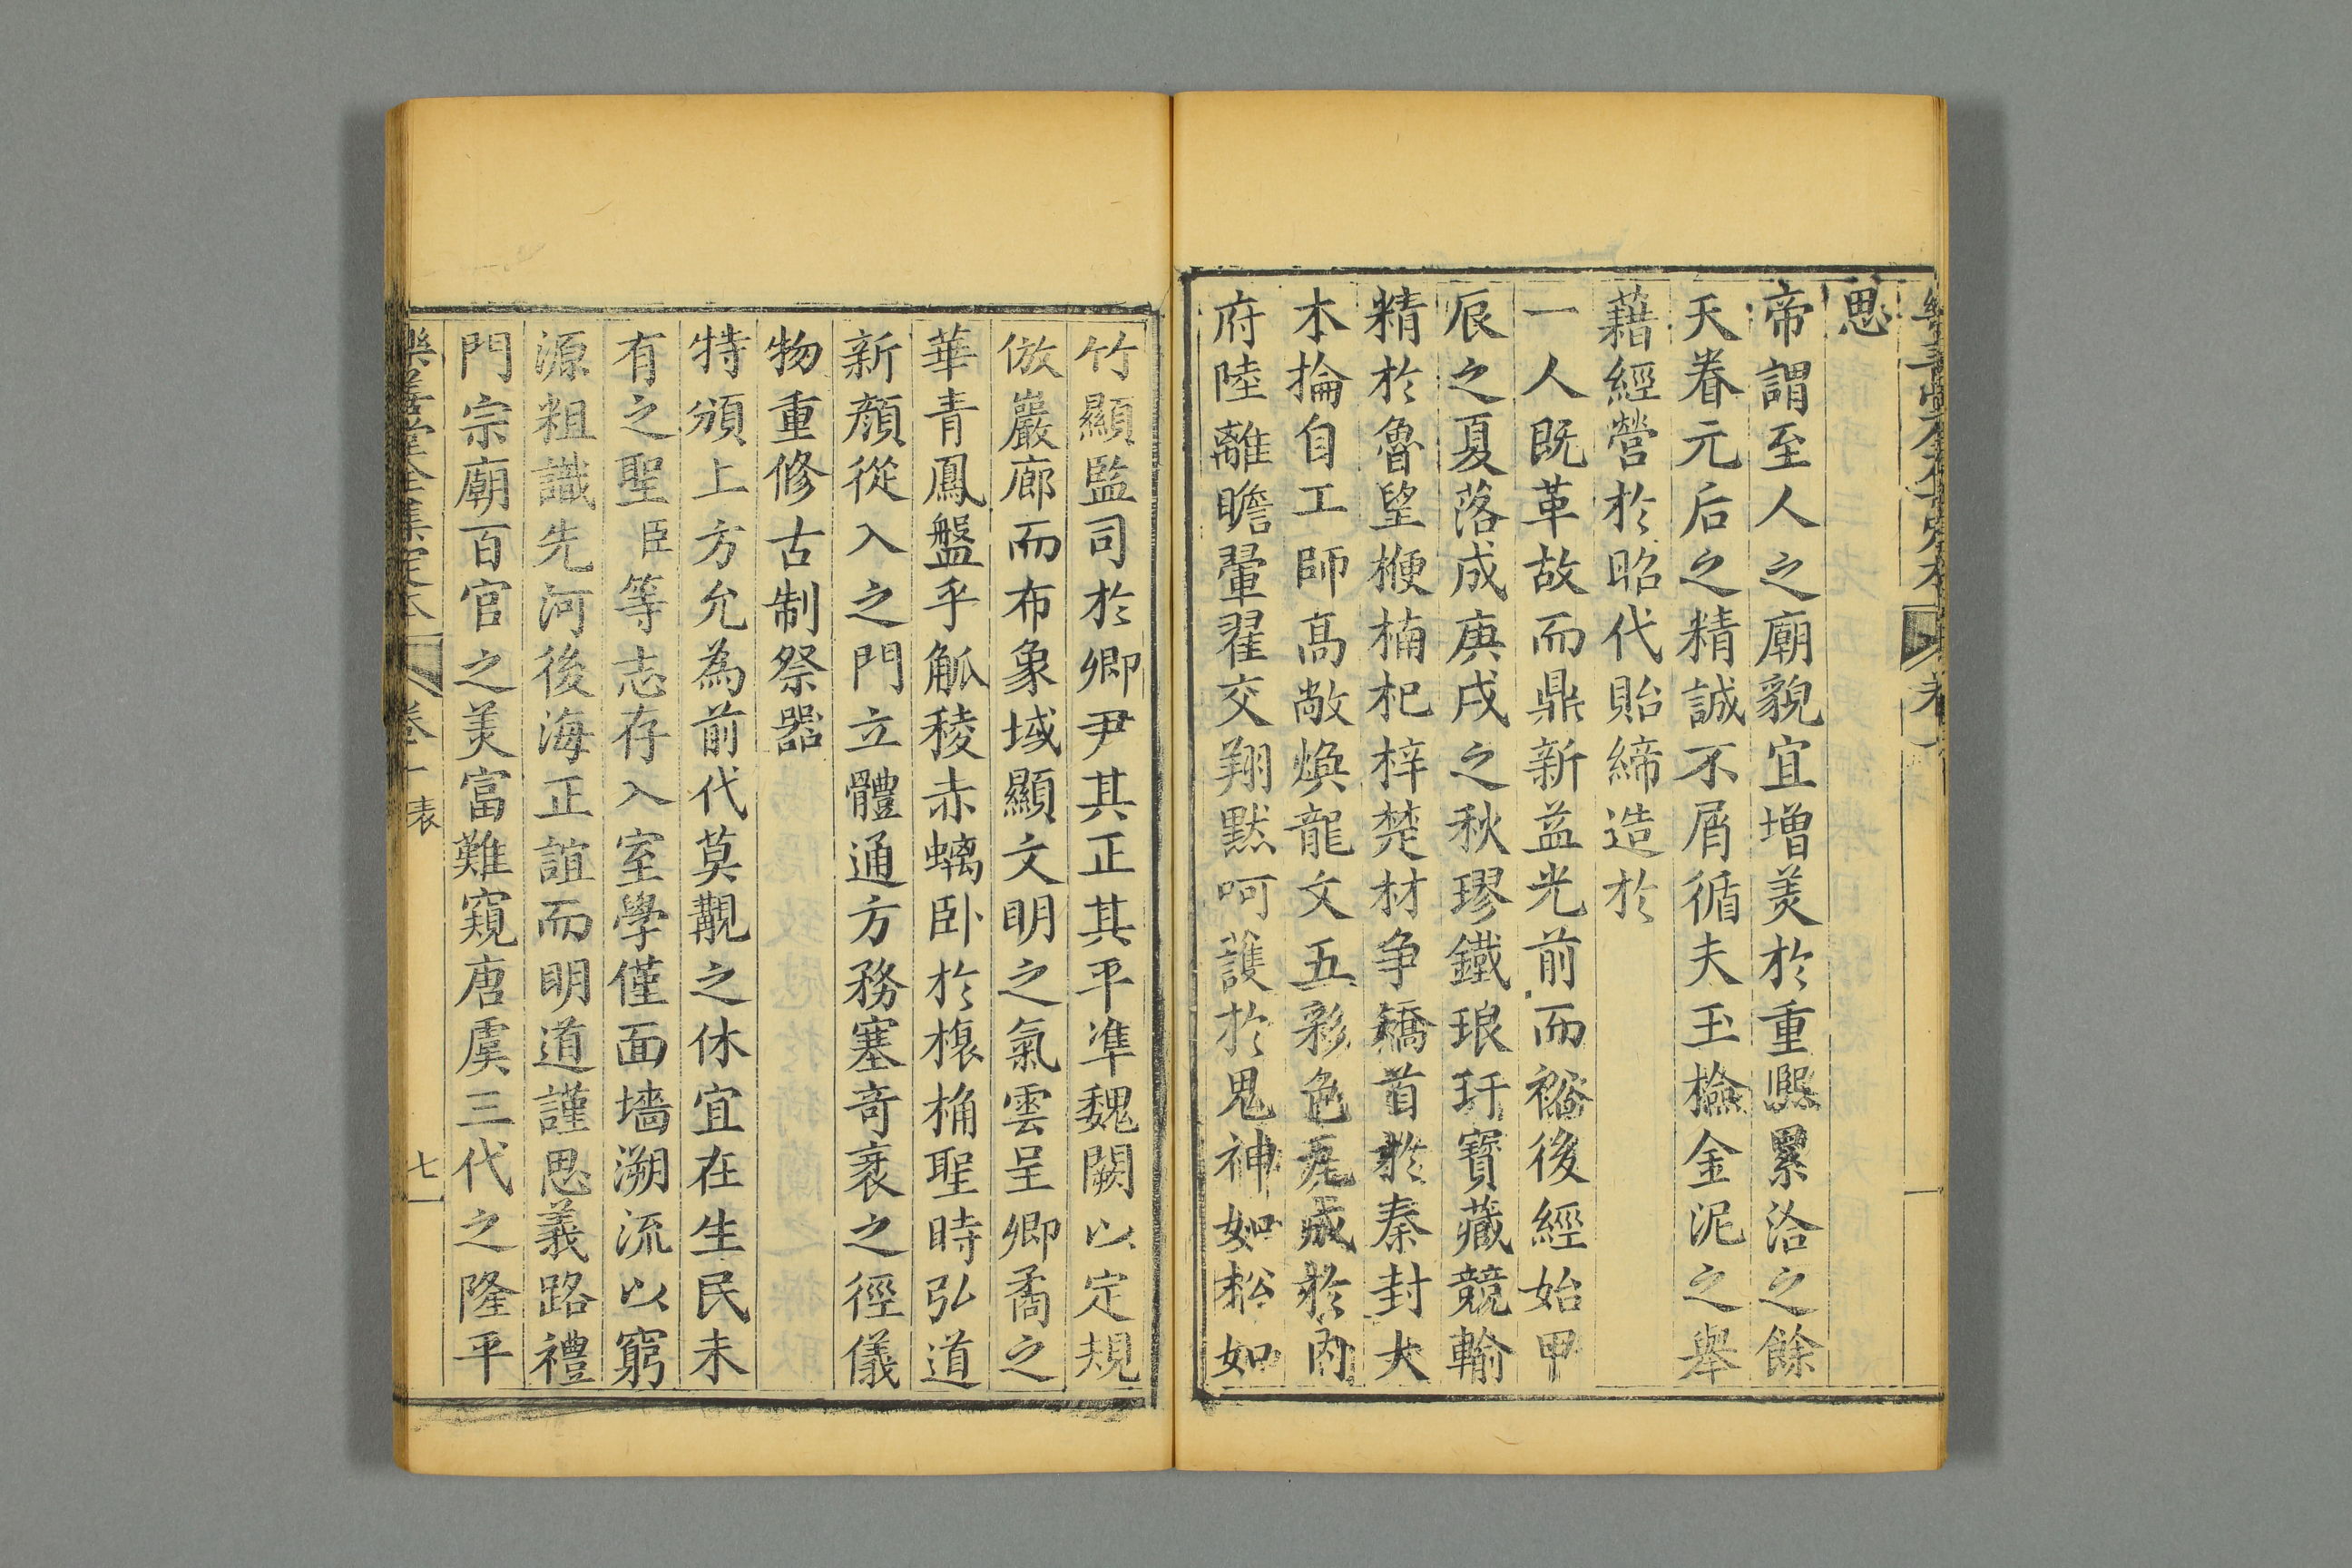 思
帝謂至人之廟貌宜增美於重熈累洽之餘
天眷元后之精誠不屑循夫玉檢金泥之舉
藉經營於昭代貽締造於
一人既革故而鼎新益光前而裕後經始甲
辰之夏落成庚戌之秋璆鐵琅玕寶藏競輸
精於魯望楩楠杞梓楚材争矯首於秦封大
本掄自工師髙敞煥龍文五彩色尨成於內
府陸離瞻翬翟交翔黙呵護於鬼神如松如
竹顯監司於卿尹其正其平準魏闕以定規
倣巖廊而布象域顯文明之氣雲呈卿矞之
華青鳳盤乎觚稜赤螭卧於榱桷聖時弘道
新顔從入之門立體通方務塞竒衺之徑儀
物重修古制祭器
特頒上方允為前代莫覯之休宜在生民未
有之聖臣等志存入室學僅面墻溯流以窮
源粗識先河後海正誼而明道謹思義路禮
門宗廟百官之美富難窺唐虞三代之隆平
樂善堂全集定本 卷一 表 七